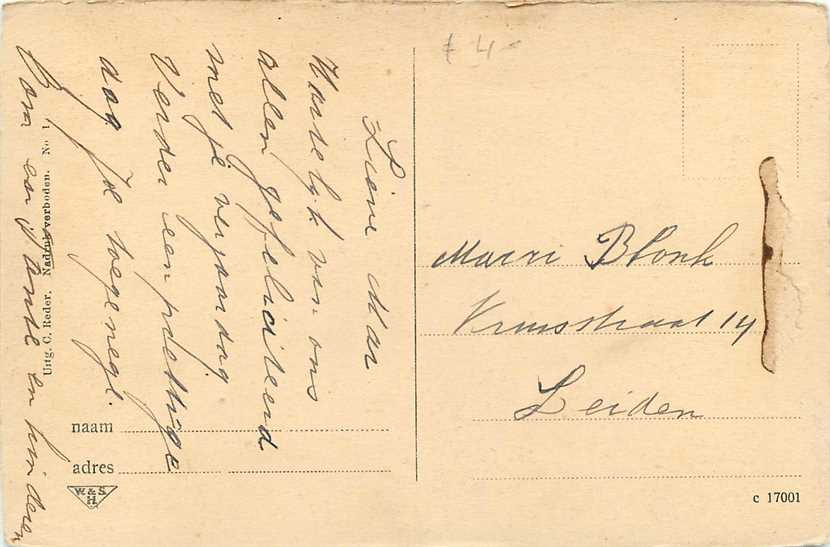 Lieve Mar
Hartelijk van ons
allen gefeliciteerd
met je verjaardag
Verder een prettige
dag Je toegeneg.
Oom en Tante en kinderen
Uitg. C. Reder. Nadruk verboden. No 1
naam
adres
W&S
H
£ 4-
Marri Blonk
Kruisstraat 14
Leiden
c 17001